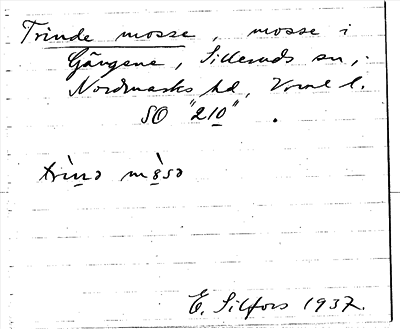 Trinde mosse, mosse i
Gängene, Silleruds sn,
Nordmarks hd, Vrml l.
SO "210".
trìnə mòsə
E. Silfors 1937.